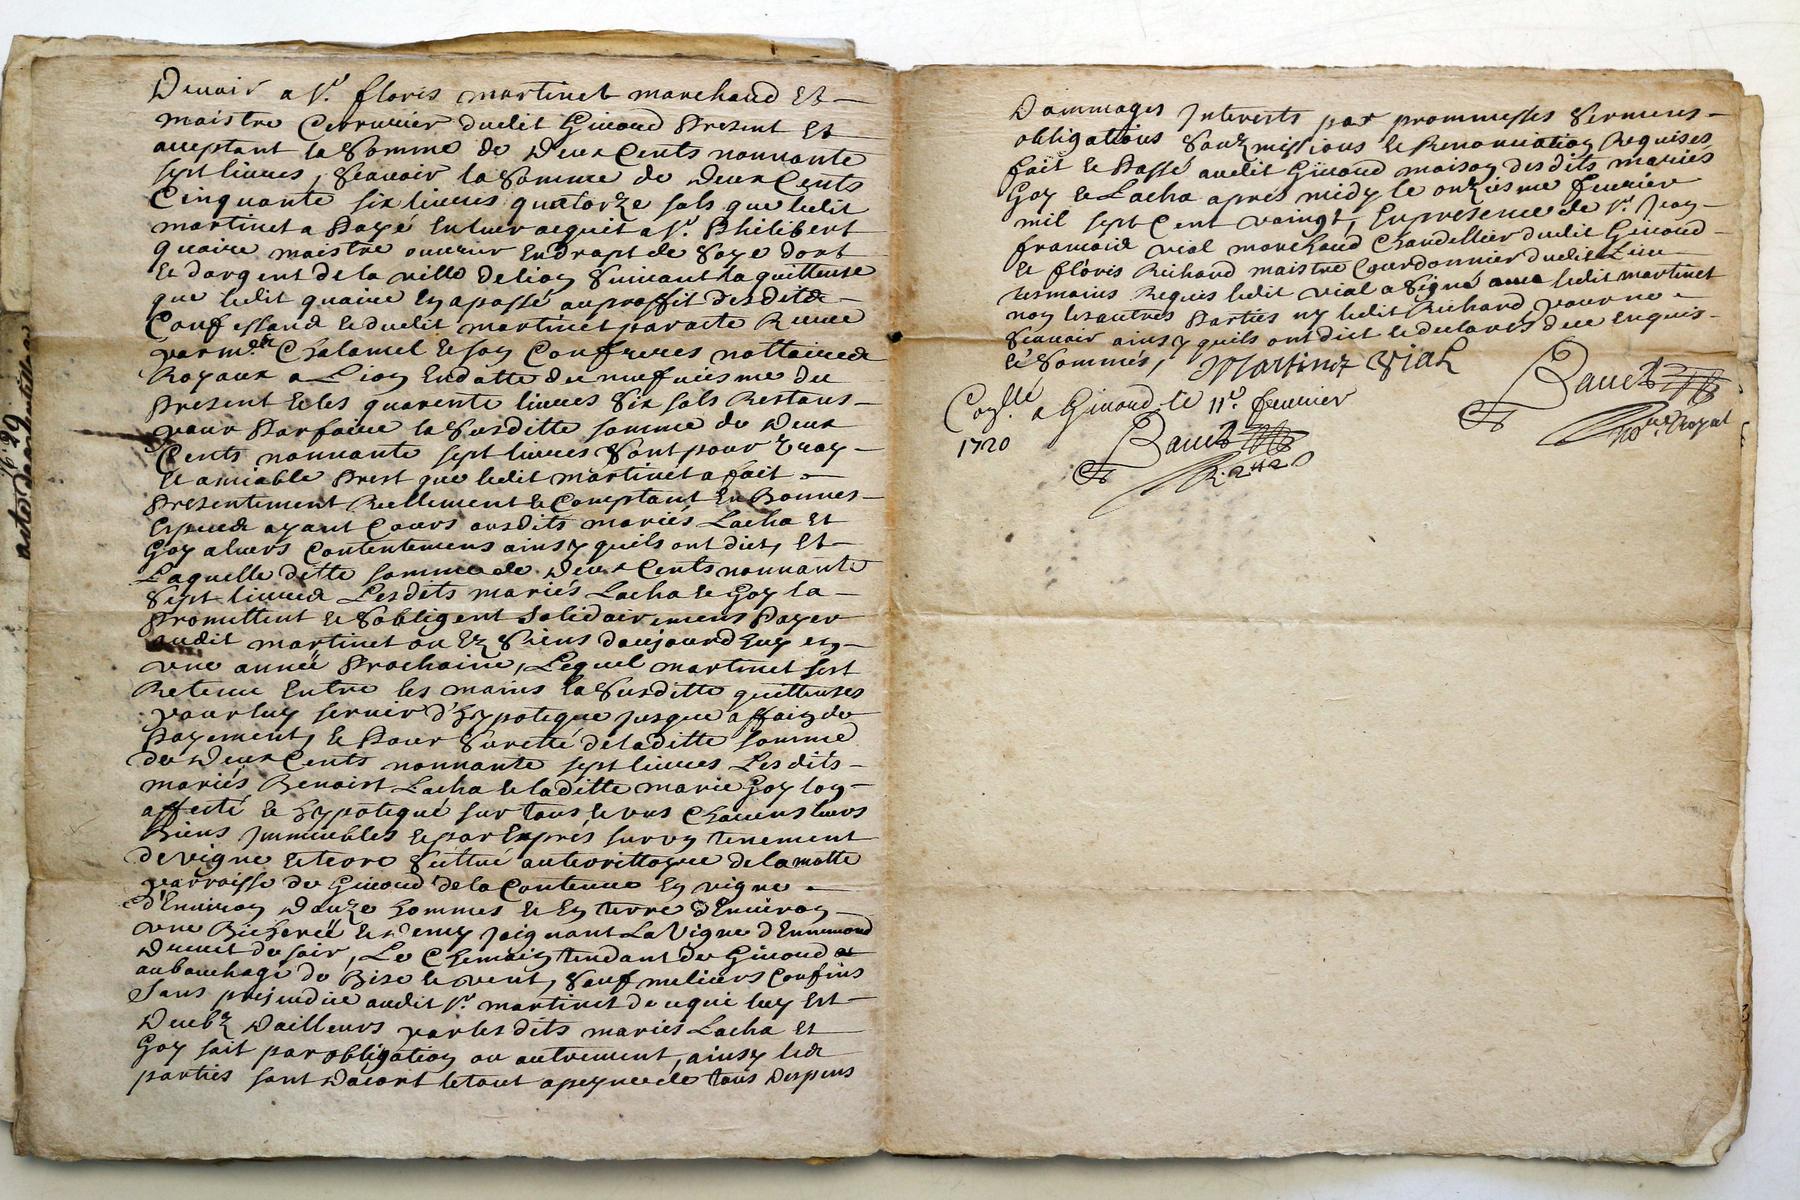 Devoir a Sr. floris martinet marchand Et
maistre Cerrurier dudit Givord Present Et
acceptant la Somme de Deux Cents nonnante
sept livres, Scavoir la Somme de Deux Cents
Cinquante six livres quatorze sols que ledit
martinet a Payé En leur acquit a Sr. Philibert
quaire maistre ouvrier En drapt de Soye dort
Et dargent de la ville De lion Suivant la quittence
que ledit quaire En a passé au proffit Desdits
Confessand Et dudit martinet par acte Receu
par me. Chalamel Et son Confreres nottaires
Royaux a Lion En datte du neufviesme du
Present Et les quarente livres Six sols Restans
pour Parfaire la Susditte somme de Deux
Cents nonnante sept livres Sont pour vray
Et amiable Prest que ledit martinet a fait
Presentement Reellement Et Comptant En Bonnes
Espences ayant Cours ausdits mariés Lacha Et
Goy a leurs Contentemens ainsy quils ont dict, Et
Laquelle ditte somme de Deux Cents nonnante
Sept livres Lesdits mariés Lacha Et Goy la
Promettent Et Sobligent Solidairemens Payer
audit martinet ou Ez Siens daujourdhuy en
une année Prochaine, Lequel martinet sest
Retenu Entre les mains la Susditte quittences
pour luy servir d'hypoteque jusque a fain de
Payement, Et Pour Sureté de laditte somme
de Deux Cents nonnante sept livres Lesdits
mariés Benoist Lacha Et laditte marie Goy lon
affecté Et hypotequé sur tous Et uns Chacuns leurs
Biens Immeubles Et par Exprés sur un tenement
de vigne Et terre Scittué au territtoyre de la motte
parroisse de Givord de la Contenue En vigne
d'Environ Douze hommes Et En terre d'Environ
une Bicherée Et demy joignant La Vigne d'Ennemond
Ducuit de soir, Le Chemain tendant de Givord
au bouchage de Bise Et vent, Sauf meliers Confins
Sans prejendice audit Sr. martinet de ce qui luy Est
Deubz Dailleurs par lesdits mariés Lacha Et
Goy soit par obligation ou autrement, ainsy les
parties sont Dacort le tout a peyne de tous Despens
Dommages Interests par prommesses Sermens
obligations Soubzmissions Et Renonciation Requises
fait Et Passé audit Givord maison desdits mariés
Goy Et Lacha aprés midy le onziesme fevrier
mil sept Cent vaingt, En presence de Sr. Jean
francois vial marchand Chandellier dudit Givord
Et floris Richard maistre Courdonnier dudit Lieu
tesmoins Requis ledit vial a Signé avec ledit martinet
non les autres Parties ny ledit Richard pour ne
Scavoir ainsy quils ont dict Et declarés de ce Enquis
Et Sommés, Martinet Vial
Conlle. a Givord le 11e. fevrier
1720